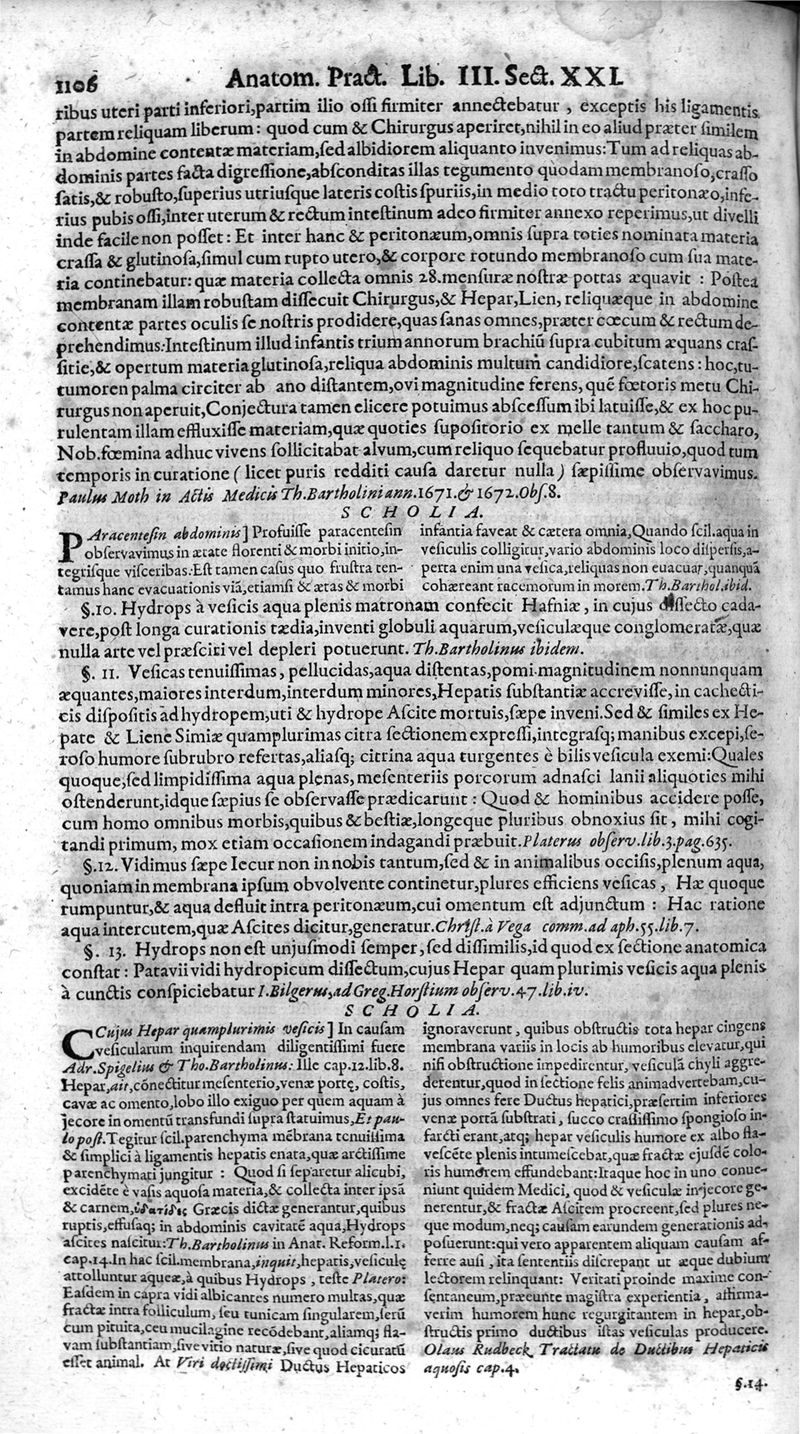 1106 Anatom. Pract. Lib. III. Sect. XXI.
ribus uteri parti inferiori,partim ilio ossi firmiter annectebatur , exceptis his ligamentis
partem reliquam liberum: quod cum & Chirurgus aperiret,nihil in eo aliud præter similem
in abdomine contentæ materiam,sed albidiorem aliquanto invenimus:Tum ad reliquas ab-
dominis partes facta digressione,absconditas illas tegumento quodam membranoso,crasso
satis,& robusto,superius utriusque lateris costis spuriis,in medio toto tractu peritonæo,infe-
rius pubis ossi,inter uterum & rectum intestinum adeo firmiter annexo reperimus,ut divelli
inde facile non posset: Et inter hanc & peritonæum,omnis supra toties nominata materia
crassa & glutinosa,simul cum rupto utero,& corpore rotundo membranoso cum sua mate-
ria continebatur: quæ materia collecta omnis 28.mensuræ nostræ pottas æquavit : Postea
membranam illam robustam dissecuit Chirurgus,& Hepar,Lien, reliquæque in abdomine
contentæ partes oculis se nostris prodidere,quas sanas omnes,præter cœcum & rectum de-
prehendimus:Intestinum illud infantis trium annorum brachiū supra cubitum æquans cras-
sitie,& opertum materia glutinosa,reliqua abdominis multum candidiore,scatens : hoc,tu-
tumoren palma circiter ab ano distantem,ovi magnitudine ferens, quē fœtoris metu Chi-
rurgus non aperuit,Conjectura tamen elicere potuimus abscessum ibi latuisse,& ex hoc pu-
rulentam illam effluxisse materiam,quæ quoties supositorio ex melle tantum & saccharo,
Nob.fœmina adhuc vivens sollicitabat alvum,cum reliquo sequebatur profluuio,quod tum
temporis in curatione ( licet puris redditi causa daretur nulla ) sæpissime observavimus.
Paulus Moth in Actis Medicis Th.Bartholini ann.1671.& 1672.Obs.8.
S C H O L I A.
PAracentesin abdominis] Profuisse paracentesin
observavimus in ætate florenti & morbi initio,in-
tegrisque visceribas:Est tamen casus quo frustra ten-
tamus hanc evacuationis viā,etiamsi & ætas & morbi
infantia faveat & cætera omnia,Quando scil.aqua in
vesiculis colligitur,vario abdominis loco dispersis,a-
perta enim una vesica,reliquas non euacuat,quanquā
cohæreant racemorum in morem.Th.Barthol.ibid.
§.10. Hydrops à vesicis aqua plenis matronam confecit Hafniæ , in cujus dissecto cada-
vere,post longa curationis tædia,inventi globuli aquarum,vesiculæque conglomeratæ,quæ
nulla arte vel præsciri vel depleri potuerunt. Th.Bartholinus ibidem.
§. 11. Vesicas tenuissimas, pellucidas,aqua distentas,pomi magnitudinem nonnunquam
æquantes,maiores interdum,interdum minores,Hepatis substantiæ accrevisse,in cachecti-
cis dispositis ad hydropem,uti & hydrope Ascite mortuis,sæpe inveni.Sed & similes ex He-
pate & Liene Simiæ quamplurimas citra sectionem expressi,integrasq; manibus excepi,se-
roso humore subrubro refertas,aliasq; citrina aqua turgentes è bilis vesicula exemi:Quales
quoque,sed limpidissima aqua plenas, mesenteriis porcorum adnasci lanii aliquoties mihi
ostenderunt,idque sæpius se observasse prædicarunt : Quod & hominibus accidere posse,
cum homo omnibus morbis,quibus & bestiæ,longeque pluribus obnoxius sit , mihi cogi-
tandi primum, mox etiam occasionem indagandi præbuit.Platerus observ.lib.3.pag.635.
§.12. Vidimus sæpe Iecur non in nobis tantum,sed & in animalibus occisis,plenum aqua,
quoniam in membrana ipsum obvolvente continetur,plures efficiens vesicas , Hæ quoque
rumpuntur,& aqua defluit intra peritonæum,cui omentum est adjunctum : Hac ratione
aqua intercutem,quæ Ascites dicitur,generatur.Christ.à Vega comm.ad aph.55.lib.7.
§. 13. Hydrops non est unjusmodi semper,sed dissimilis,id quod ex sectione anatomica
constat : Patavii vidi hydropicum dissectum,cujus Hepar quam plurimis vesicis aqua plenis
à cunctis conspiciebatur I.Bilgerus,ad Greg.Horstium observ.47.lib.iv.
S C H O L I A.
CCujus Hepar quamplurimis vesicis ] In causam
vesicularum inquirendam diligentissimi fuere
Adr.Spigelius & Tho.Bartholinus: Ille cap.12.lib.8.
Hepar,ait,cōnectitur mesenterio,venæ portę, costis,
cavæ ac omento,lobo illo exiguo per quem aquam à
jecore in omentū transfundi supra statuimus,Et pau-
lo post.Tegitur scil.parenchyma mēbrana tenuissima
& simplici à ligamentis hepatis enata,quæ arctissime
parenchymati jungitur : Quod si separetur alicubi,
excidēte è vasis aquosa materia,& collecta inter ipsā
& carnem,ὑδατίδες Græcis dictæ generantur,quibus
ruptis,effusaq; in abdominis cavitatē aqua,Hydrops
ascites nascitur:Th.Bartholinus in Anat. Reform.l.1.
cap.14.In hac scil.membrana,inquit,hepatis,vesiculę
attolluntur aqueæ,à quibus Hydrops , teste Platero:
Easdem in capra vidi albicantes numero multas,quæ
fractæ intra folliculum, seu tunicam singularem,serū
cum pituita,ceu mucilagine recōdebant,aliamq; fla-
vam substantiam,sive vitio naturæ,sive quod cicuratū
esset animal. At Viri doctissimi Ductus Hepaticos
ignoraverunt , quibus obstructis tota hepar cingens
membrana variis in locis ab humoribus elevatur,qui
nisi obstructione impedirentur, vesiculā chyli aggre-
derentur,quod in sectione felis animadvertebam,cu-
jus omnes fere Ductus hepatici,præsertim inferiores
venæ portā substrati , succo crassissimo spongioso in-
farcti erant,atq; hepar vesiculis humore ex albo fla-
vescēte plenis intumescebat,quæ fractæ ejusdē colo-
ris humorem effundebant:Itaque hoc in uno conue-
niunt quidem Medici, quod & vesiculæ in jecore ge-
nerentur,& fractæ Ascitem procreent,sed plures ne-
que modum,neq; causam earundem generationis ad-
posuerunt:qui vero apparentem aliquam causam af-
ferre ausi , ita sententiis discrepant ut æque dubium
lectorem relinquant: Veritati proinde maxime con-
sentaneum,præeunte magistra experientia, affirma-
verim humorem hunc regurgitantem in hepar,ob-
structis primo ductibus istas vesiculas producere.
Olaus Rudbeck Tractatu de Ductibus Hepaticis
aquosis cap.4.
§.14.